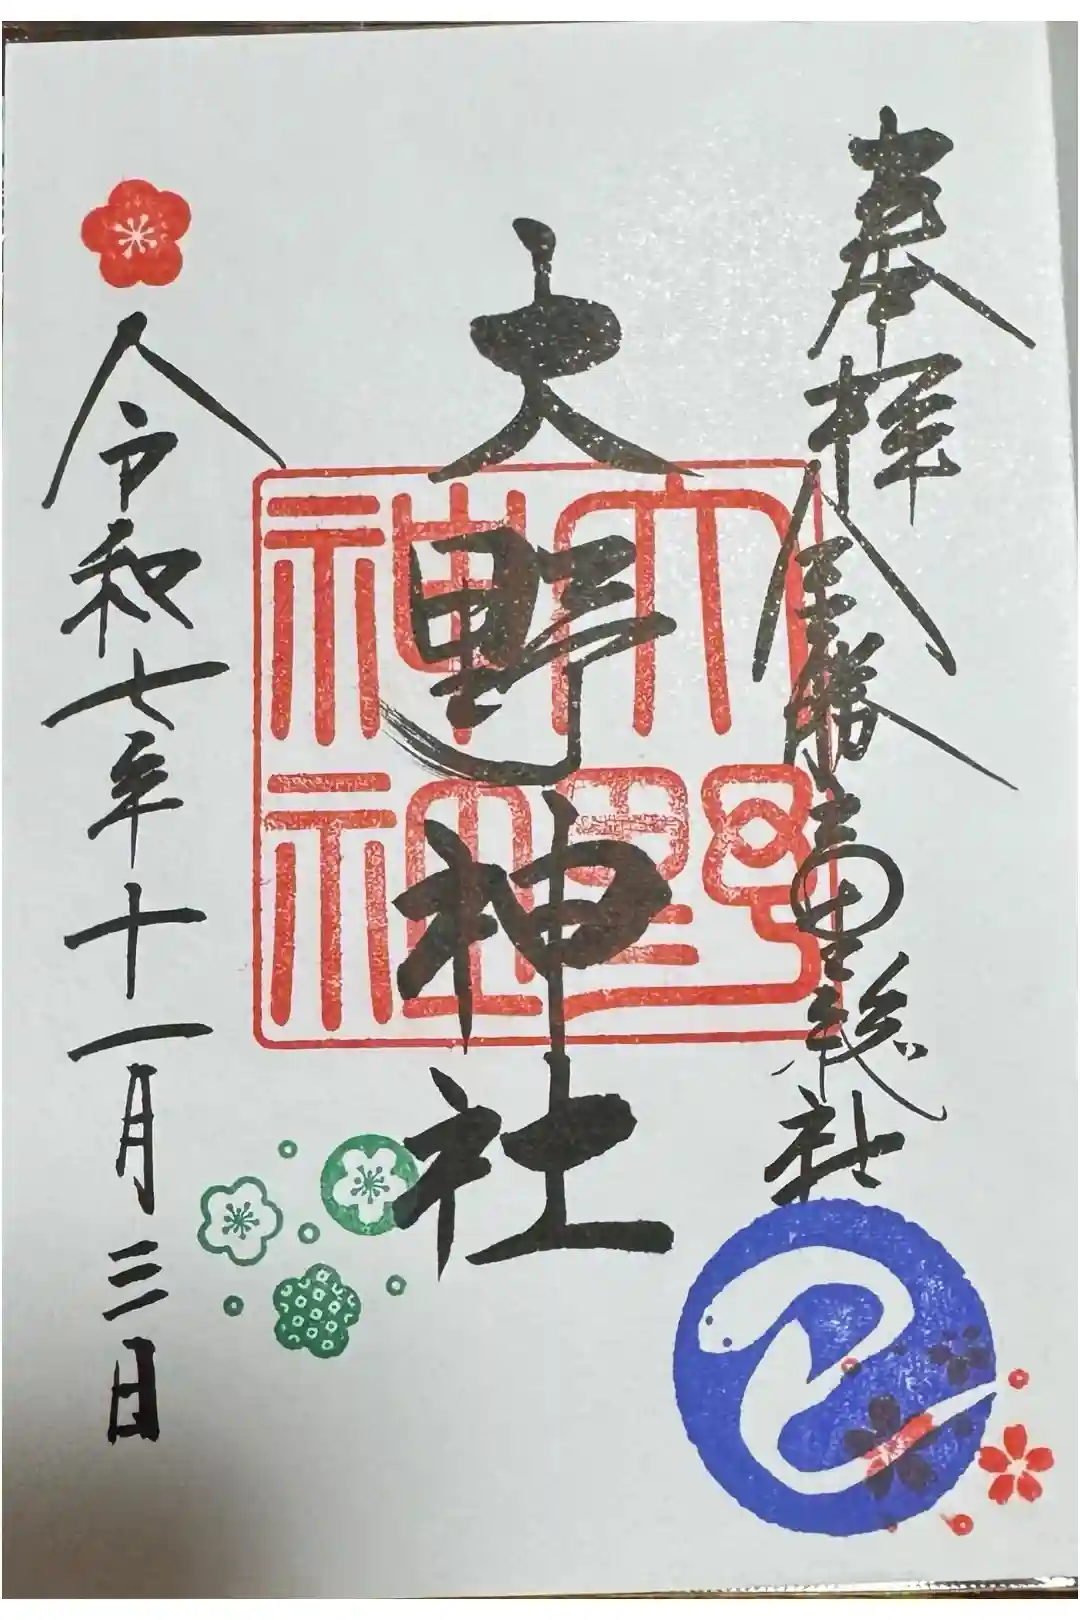 奉拝
金勝里総社
大野神社
大野
神社
令和七年十一月三日